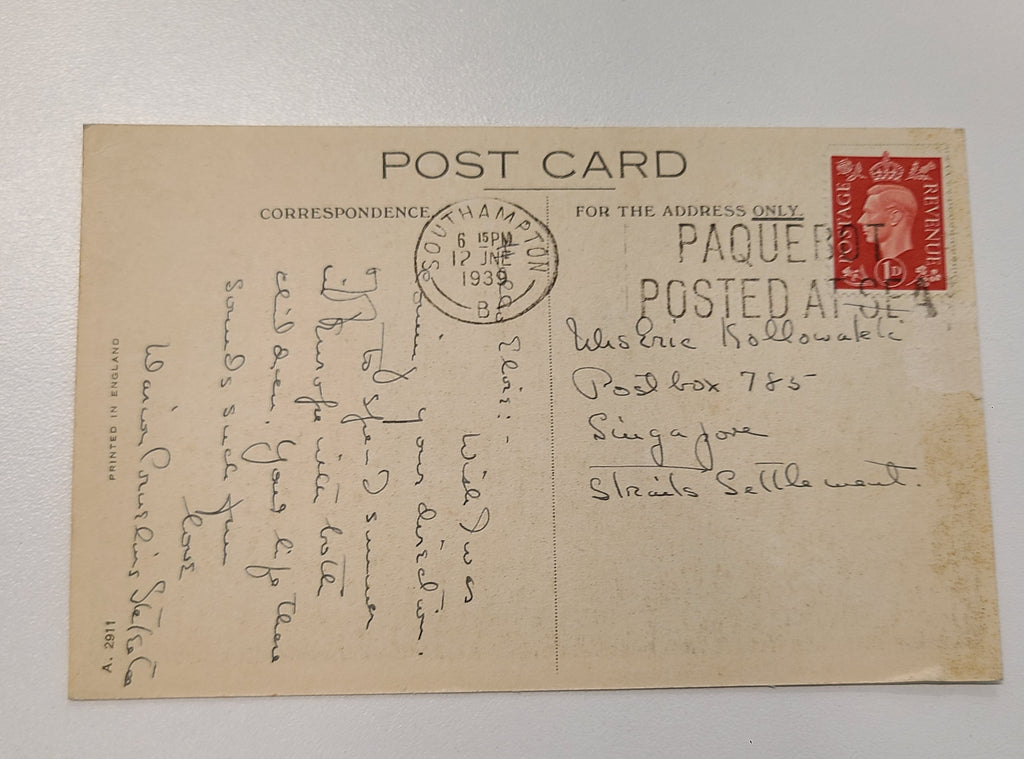 POST CARD
CORRESPONDENCE
FOR THE ADDRESS ONLY.
POSTAGE REVENUE
1D
SOUTHAMPTON
6 15PM
12 JNE
1939
B
PAQUEBOT
POSTED AT SEA
Eric Kollowakki
Post box 785
Singapore
Straits Settlement.
Dear Elsie: -
Wish I was
coming your direction.
I to spend summer
Europe with both
children. Your life there
sounds such fun
Love
PRINTED IN ENGLAND
A. 2911